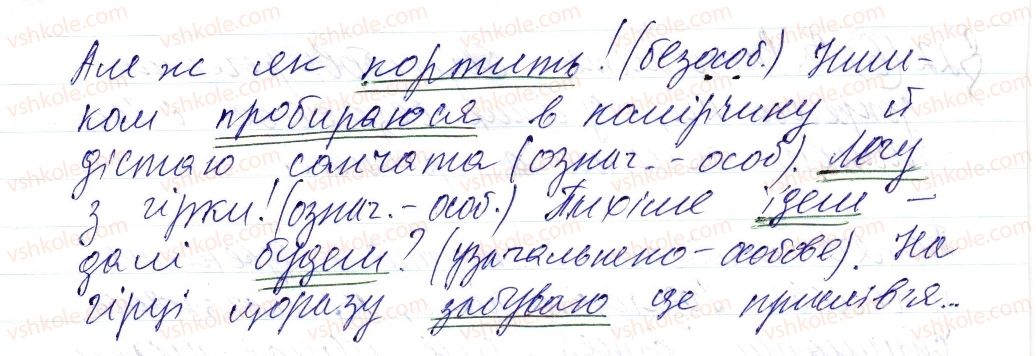 Але ж як кортить! (безособ.) Ниш-
ком пробираюся в комірчину й
дістаю санчата (означ.-особ). Лечу
з гірки! (означ.-особ.) Тихіше їдеш –
далі будеш? (узагальнено-особове). На
гірці щоразу забуваю це прислів'я..